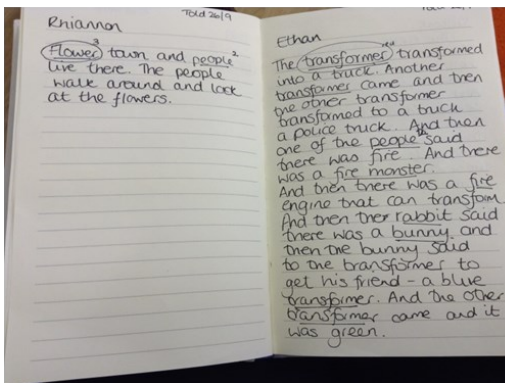 Told 26/9
Rhiannon
Flower 3 town and people 2
live there. The people
walk around and look
at the flowers.
Ethan
The transformer red transformed
into a truck. Another
transformer came and then
the other transformer
transformed to a truck
a police truck. And then
one of the people said
there was fire. And there
was a fire monster.
And then there was a fire
engine that can transform
And then ther rabbit said
there was a bunny and
then the bunny said
to the transformer to
get his friend - a blue
transformer. And the other
transformer came and it
was green.